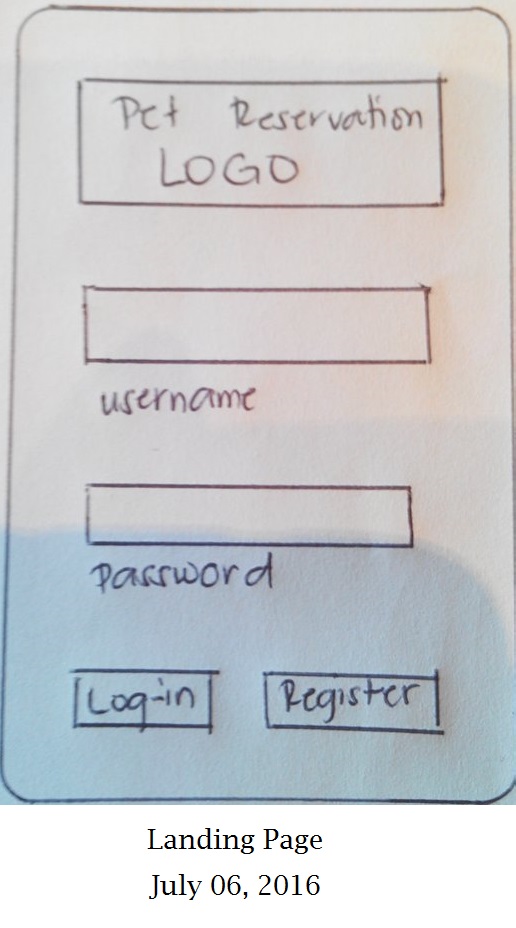 Pet Reservation
LOGO
username
password
Log-in
Register
Landing Page
July 06, 2016